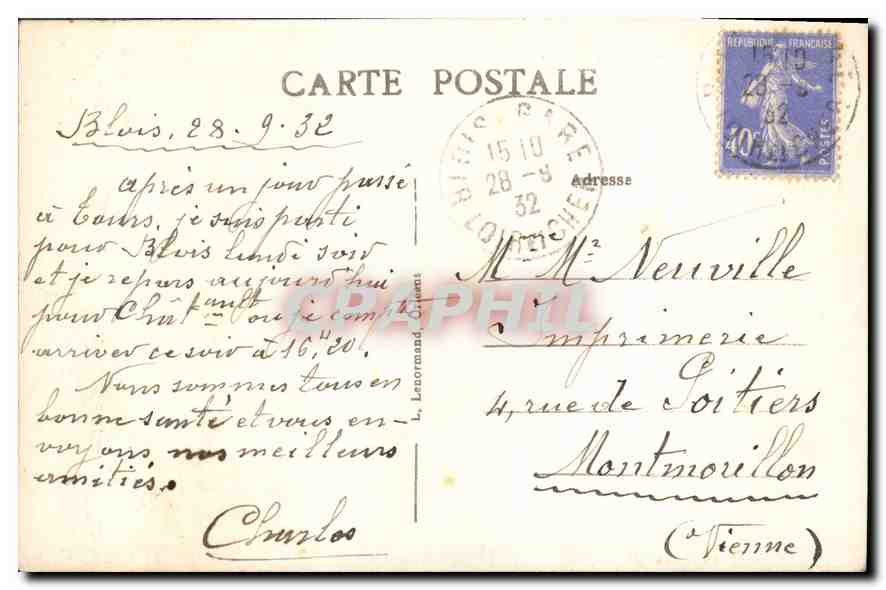 CARTE POSTALE
Blois, 28.9.32
après un jour passé
à Tours, je suis parti
pour Blois lundi soir
et je repars aujourd'hui
pour Chât^ault où je compte
arriver ce soir à 16H20.
Nous sommes tous en
bonne santé et vous en-
voyons nos meilleurs
amitiés.
Charles
L. Lenormand, Orléans
BLOIS-GARE
15 10
28 -9
32
LOIR-ET-CHER
REPUBLIQUE FRANÇAISE
15 10
28 -9
32
40c
POSTES
Adresse
M^me M^r Neuville
Imprimerie
4, rue de Poitiers
Montmorillon
(Vienne)
CPAPHIL